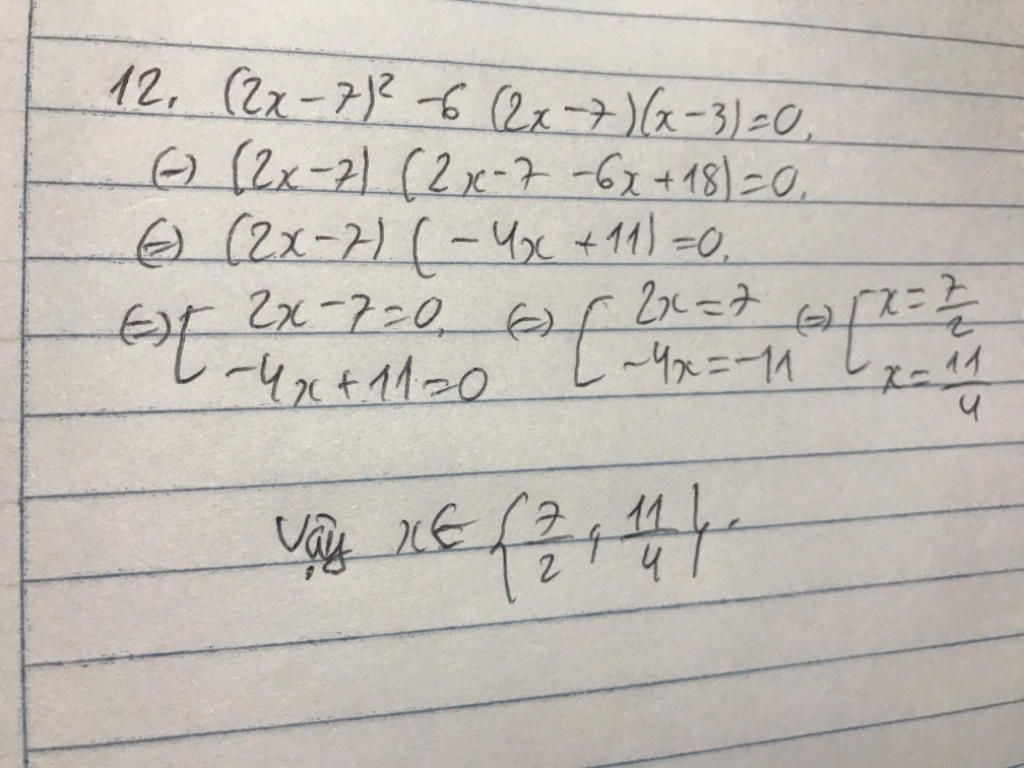 12. (2x-7)² -6 (2x-7)(x-3)=0.
(=) (2x-7) (2x-7 -6x+18)=0.
(=) (2x-7) (-4x +11)=0.
(=) [ 2x-7=0. (=) [ 2x=7 (=) [ x=7/2
-4x+11=0 -4x=-11 x=11/4
Vậy x∈ {7/2 ; 11/4}.